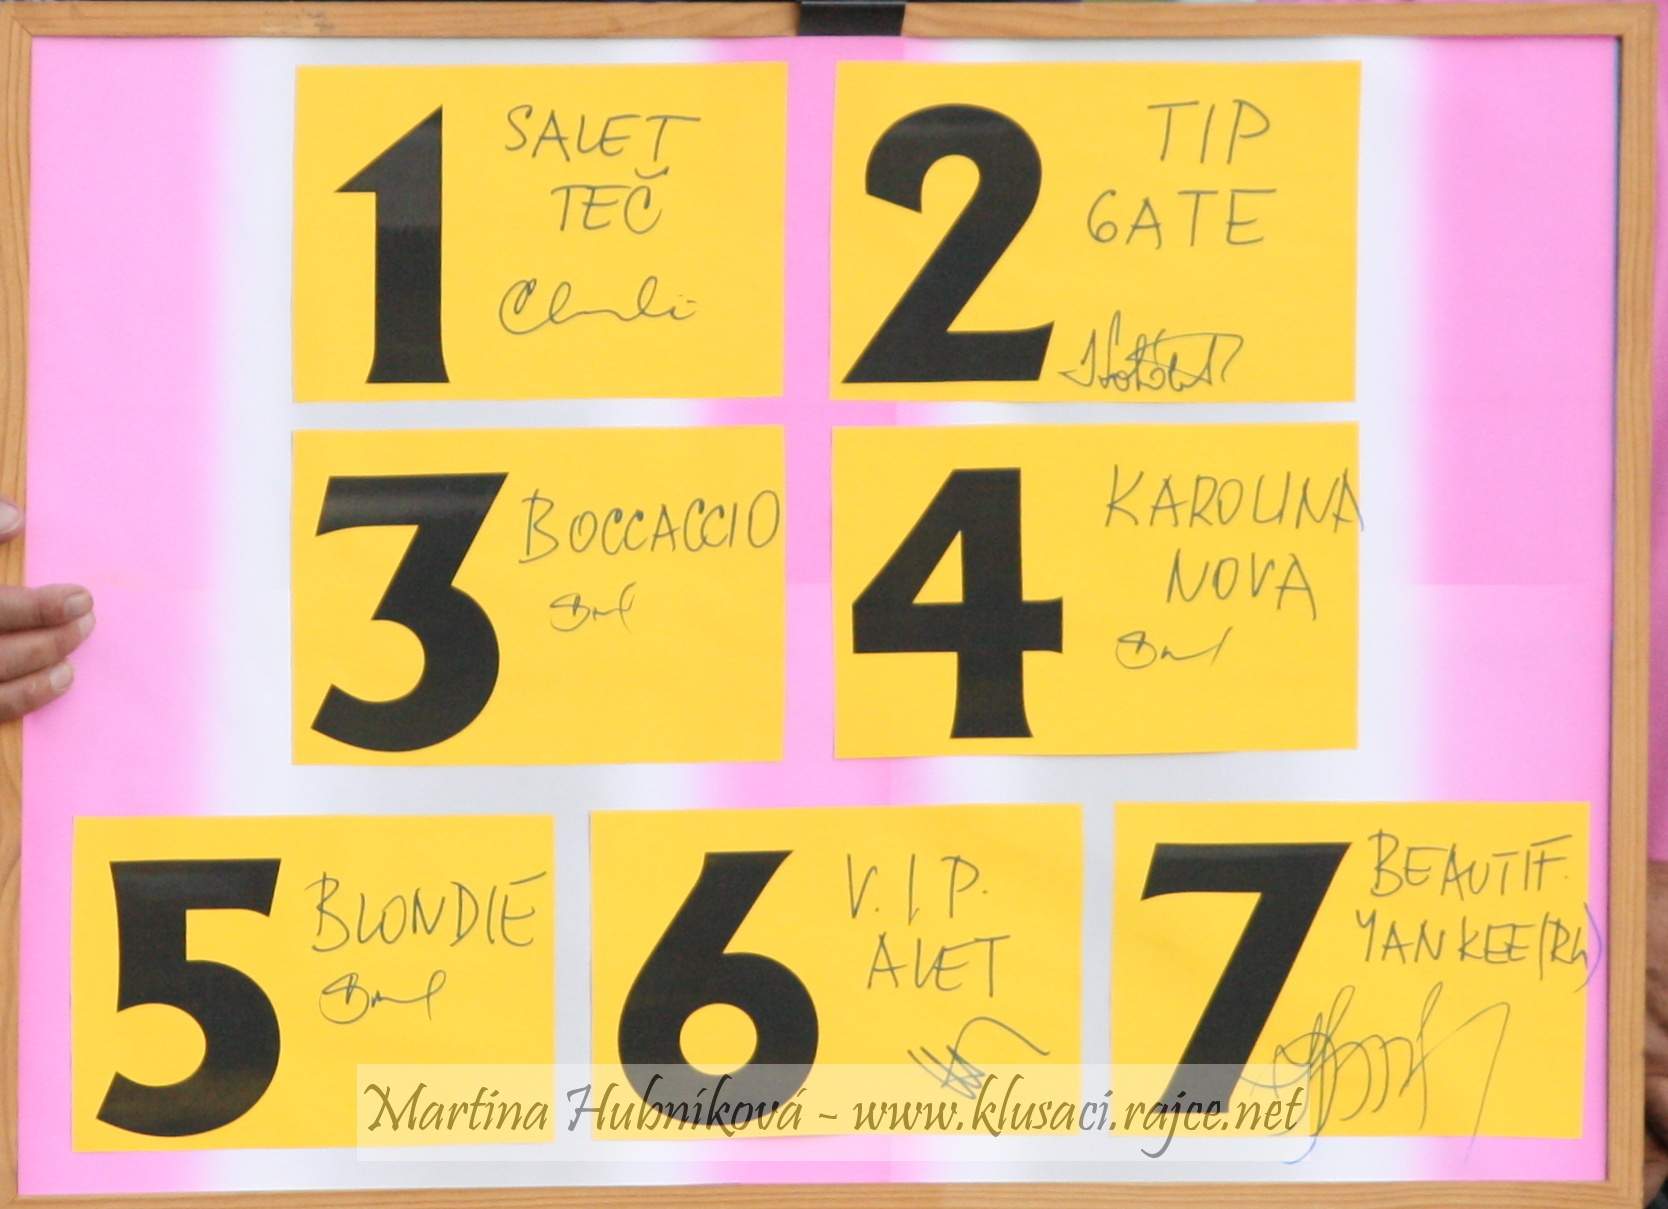 1 SALET
TEČ
2 TIP
GATE
3 BOCCACCIO
4 KAROLINA
NOVA
5 BLONDIE
6 V.I.P.
ALET
7 BEAUTIF.
YANKEE(Rh)
Martina Hubníková - www.klusaci.rajce.net